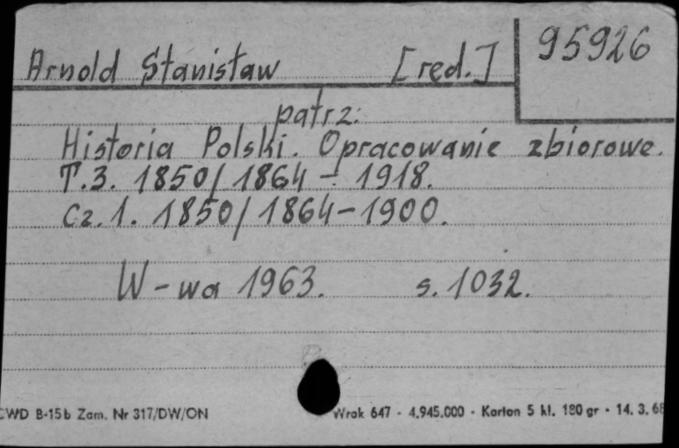 Arnold Stanisław [red.] 95926
patrz:
Historia Polski. Opracowanie zbiorowe.
T.3. 1850/1864 - 1918.
Cz.1. 1850/1864-1900.
W-wa 1963. s. 1032.
CWD B-15b Zam. Nr 317/DW/ON Wrak 647 - 4.945.000 - Karton 5 kl. 180 gr - 14. 3. 68